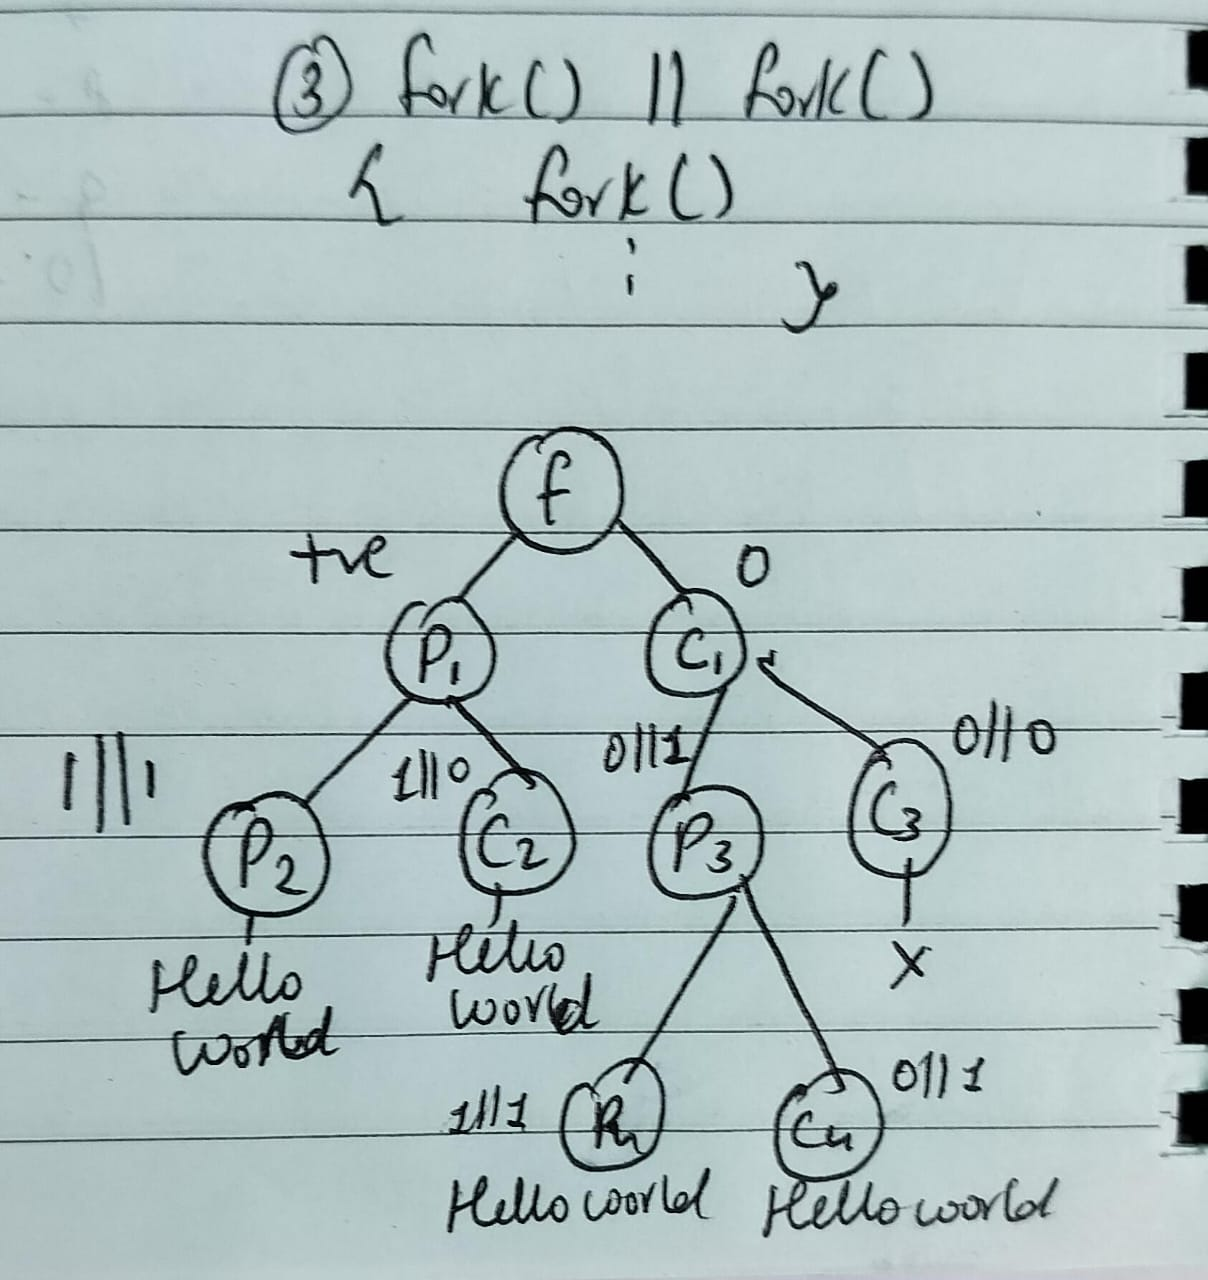 ③ fork() || fork()
{ fork()
; }
f
+ve 0
P1 C1
1||1 1||0 0||1 0||0
P2 C2 P3 C3
Hello world Hello world X
1||1 P4 C4 0||1
Hello world Hello world